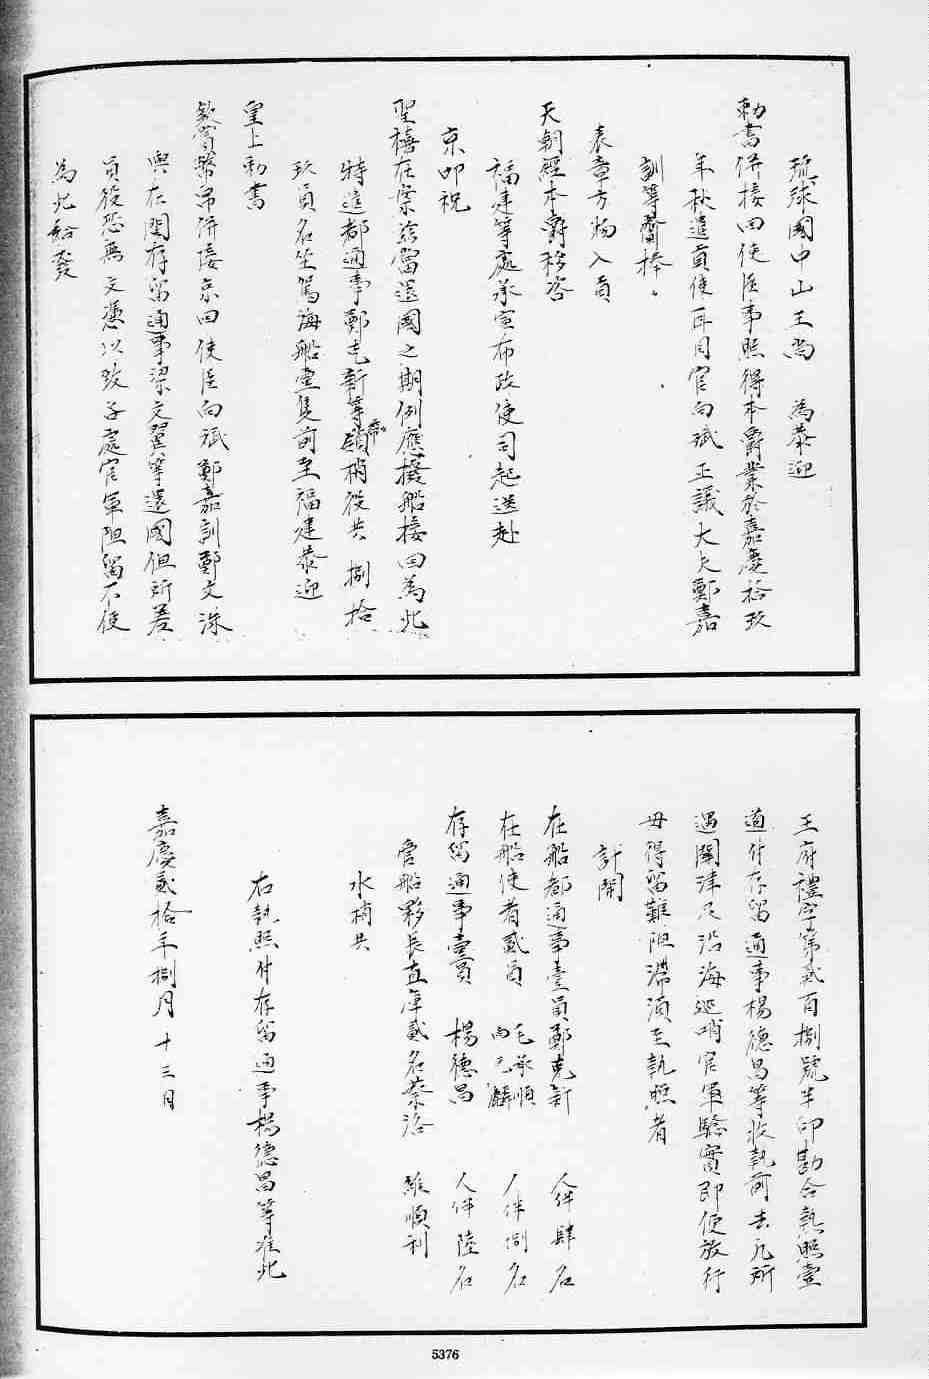 琉球國中山王尚　為恭迎
勅書併接回使臣事照得本爵業於嘉慶拾玖
年秋遣貢使耳目官向斌正議大夫鄭嘉
訓等齎捧
表章方物入貢
天朝經本爵移咨
福建等處承宣布政使司起送赴
京叩祝
聖禧在案茲當還國之期例應撥船接回為此
特遣都通事鄭克新等帶領梢役共捌拾
玖員名坐駕海船壹隻前至福建恭迎
皇上勅書
欽賞幣帛併接京回使臣向斌鄭嘉訓鄭文洙
與在閩存留通事梁文翼等還國但所差
員役恐無文憑以致各處官軍阻留不便
為此給發
王府禮字第貳百捌號半印勘合執照壹
道付存留通事楊德昌等收執前去凡所
遇關津及沿海巡哨官軍驗實即便放行
毋得留難阻滯須至執照者
計開
在船都通事壹員鄭克新　人伴肆名
在船使者貳員　毛承順　向元麟　人伴捌名
存留通事壹員　楊德昌　人伴陸名
管船夥長直庫貳名蔡　　順利
水梢共
右執照付存留通事楊德昌等准此
嘉慶貳拾年捌月十三日
5376